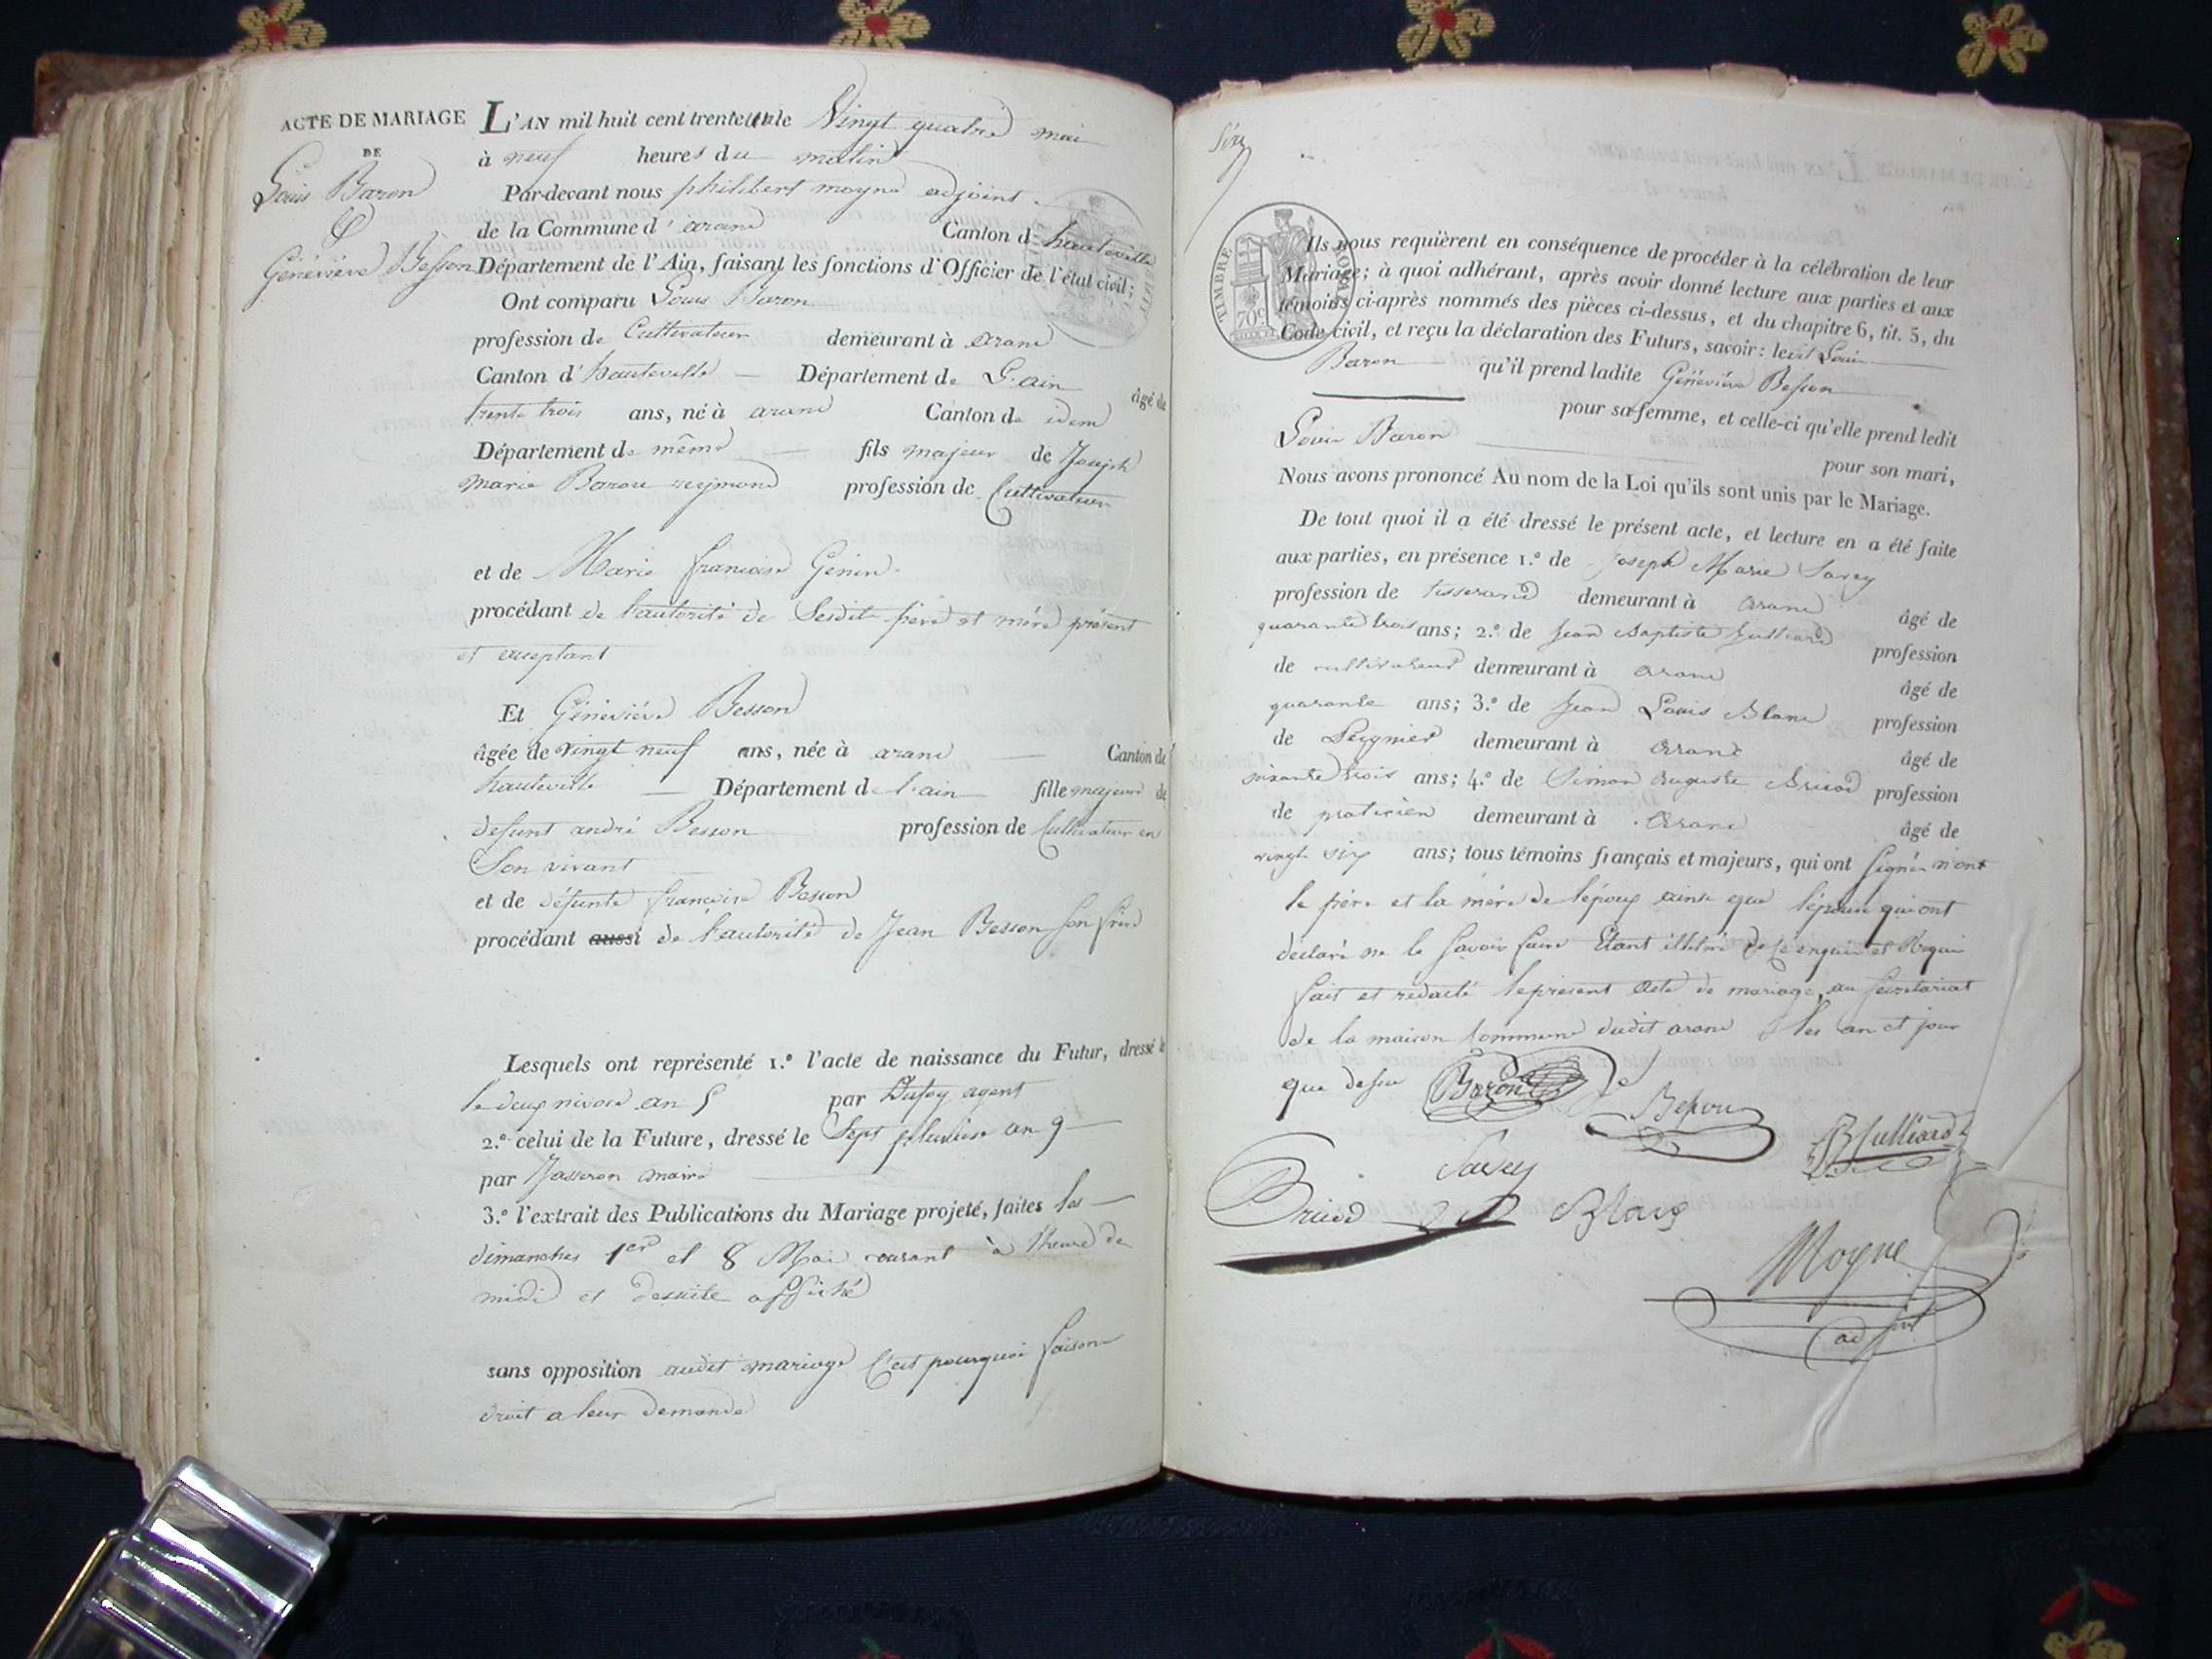 ACTE DE MARIAGE
DE
Louis Baron
&
Généviève Besson
L'AN mil huit cent trente et un le Vingt quatre mai
à neuf heures du matin
Par-devant nous philibert moyne adjoint
de la Commune d' arand Canton d hauteville
Département de l'Ain, faisant les fonctions d'Officier de l'état civil;
Ont comparu Louis Baron
profession de Cultivateur demeurant à arand
Canton d' hauteville Département de L'ain âgé de
trente trois ans, né à arand Canton de idem
Département de même fils majeur de Joseph
marie Baron profession de Cultivateur
et de Marie francoise Genin
procédant de l'autorité de Sesdit père et mère présent
et acceptant
Et Génèviève Besson
âgée de vingt neuf ans, née à arand Canton de
hauteville Département de l'ain fille majeure de
defunt andré Besson profession de Cultivateur en
Son vivant
et de défunte francoise Besson
procédant aussi de l'autorité de Jean Besson son frère
Lesquels ont représenté 1.º l'acte de naissance du Futur, dressé le
le deux nivose an par Dufoy agent
2.º celui de la Future, dressé le Sept pluviose an 9
par Jasseron maire
3.º l'extrait des Publications du Mariage projeté, faites les
dimanches 1er et 8 Mai courant à l'heure de
midi et desuite affiché
sans opposition audit mariage C'est pourquoi faisons
droit a leur demande
TIMBRE ROYAL
70c
Ils nous requièrent en conséquence de procéder à la célébration de leur
Mariage; à quoi adhérant, après avoir donné lecture aux parties et aux
témoins ci-après nommés des pièces ci-dessus, et du chapitre 6, tit. 5, du
Code civil, et reçu la déclaration des Futurs, savoir: ledit Louis
Baron qu'il prend ladite Génévièva Besson
pour sa femme, et celle-ci qu'elle prend ledit
Louis Baron pour son mari,
Nous avons prononcé Au nom de la Loi qu'ils sont unis par le Mariage.
De tout quoi il a été dressé le présent acte, et lecture en a été faite
aux parties, en présence 1.º de Joseph Marie Savey
profession de tisserand demeurant à arand âgé de
quarante trois ans; 2.º de Jean Baptiste Julliard profession
de cultivateur demeurant à arand âgé de
quarante ans; 3.º de Jean Louis Blanc profession
de Peignier demeurant à Arand âgé de
soixante trois ans; 4.º de Simon auguste Bricod profession
de praticien demeurant à Arand âgé de
vingt six ans; tous témoins français et majeurs, qui ont signé non
le père et la mère de l'époux ainsi que l'épouse qui ont
déclaré ne le savoir faire Etant illitéré de ce enquis et Requis
fait et rédacté le présent acte de mariage au secrétariat
de la maison Commune dudit arand les an et jour
que dessu
Baron
Besson
Julliard
Savey
Bricod
Blanc
Moyne
adjoint